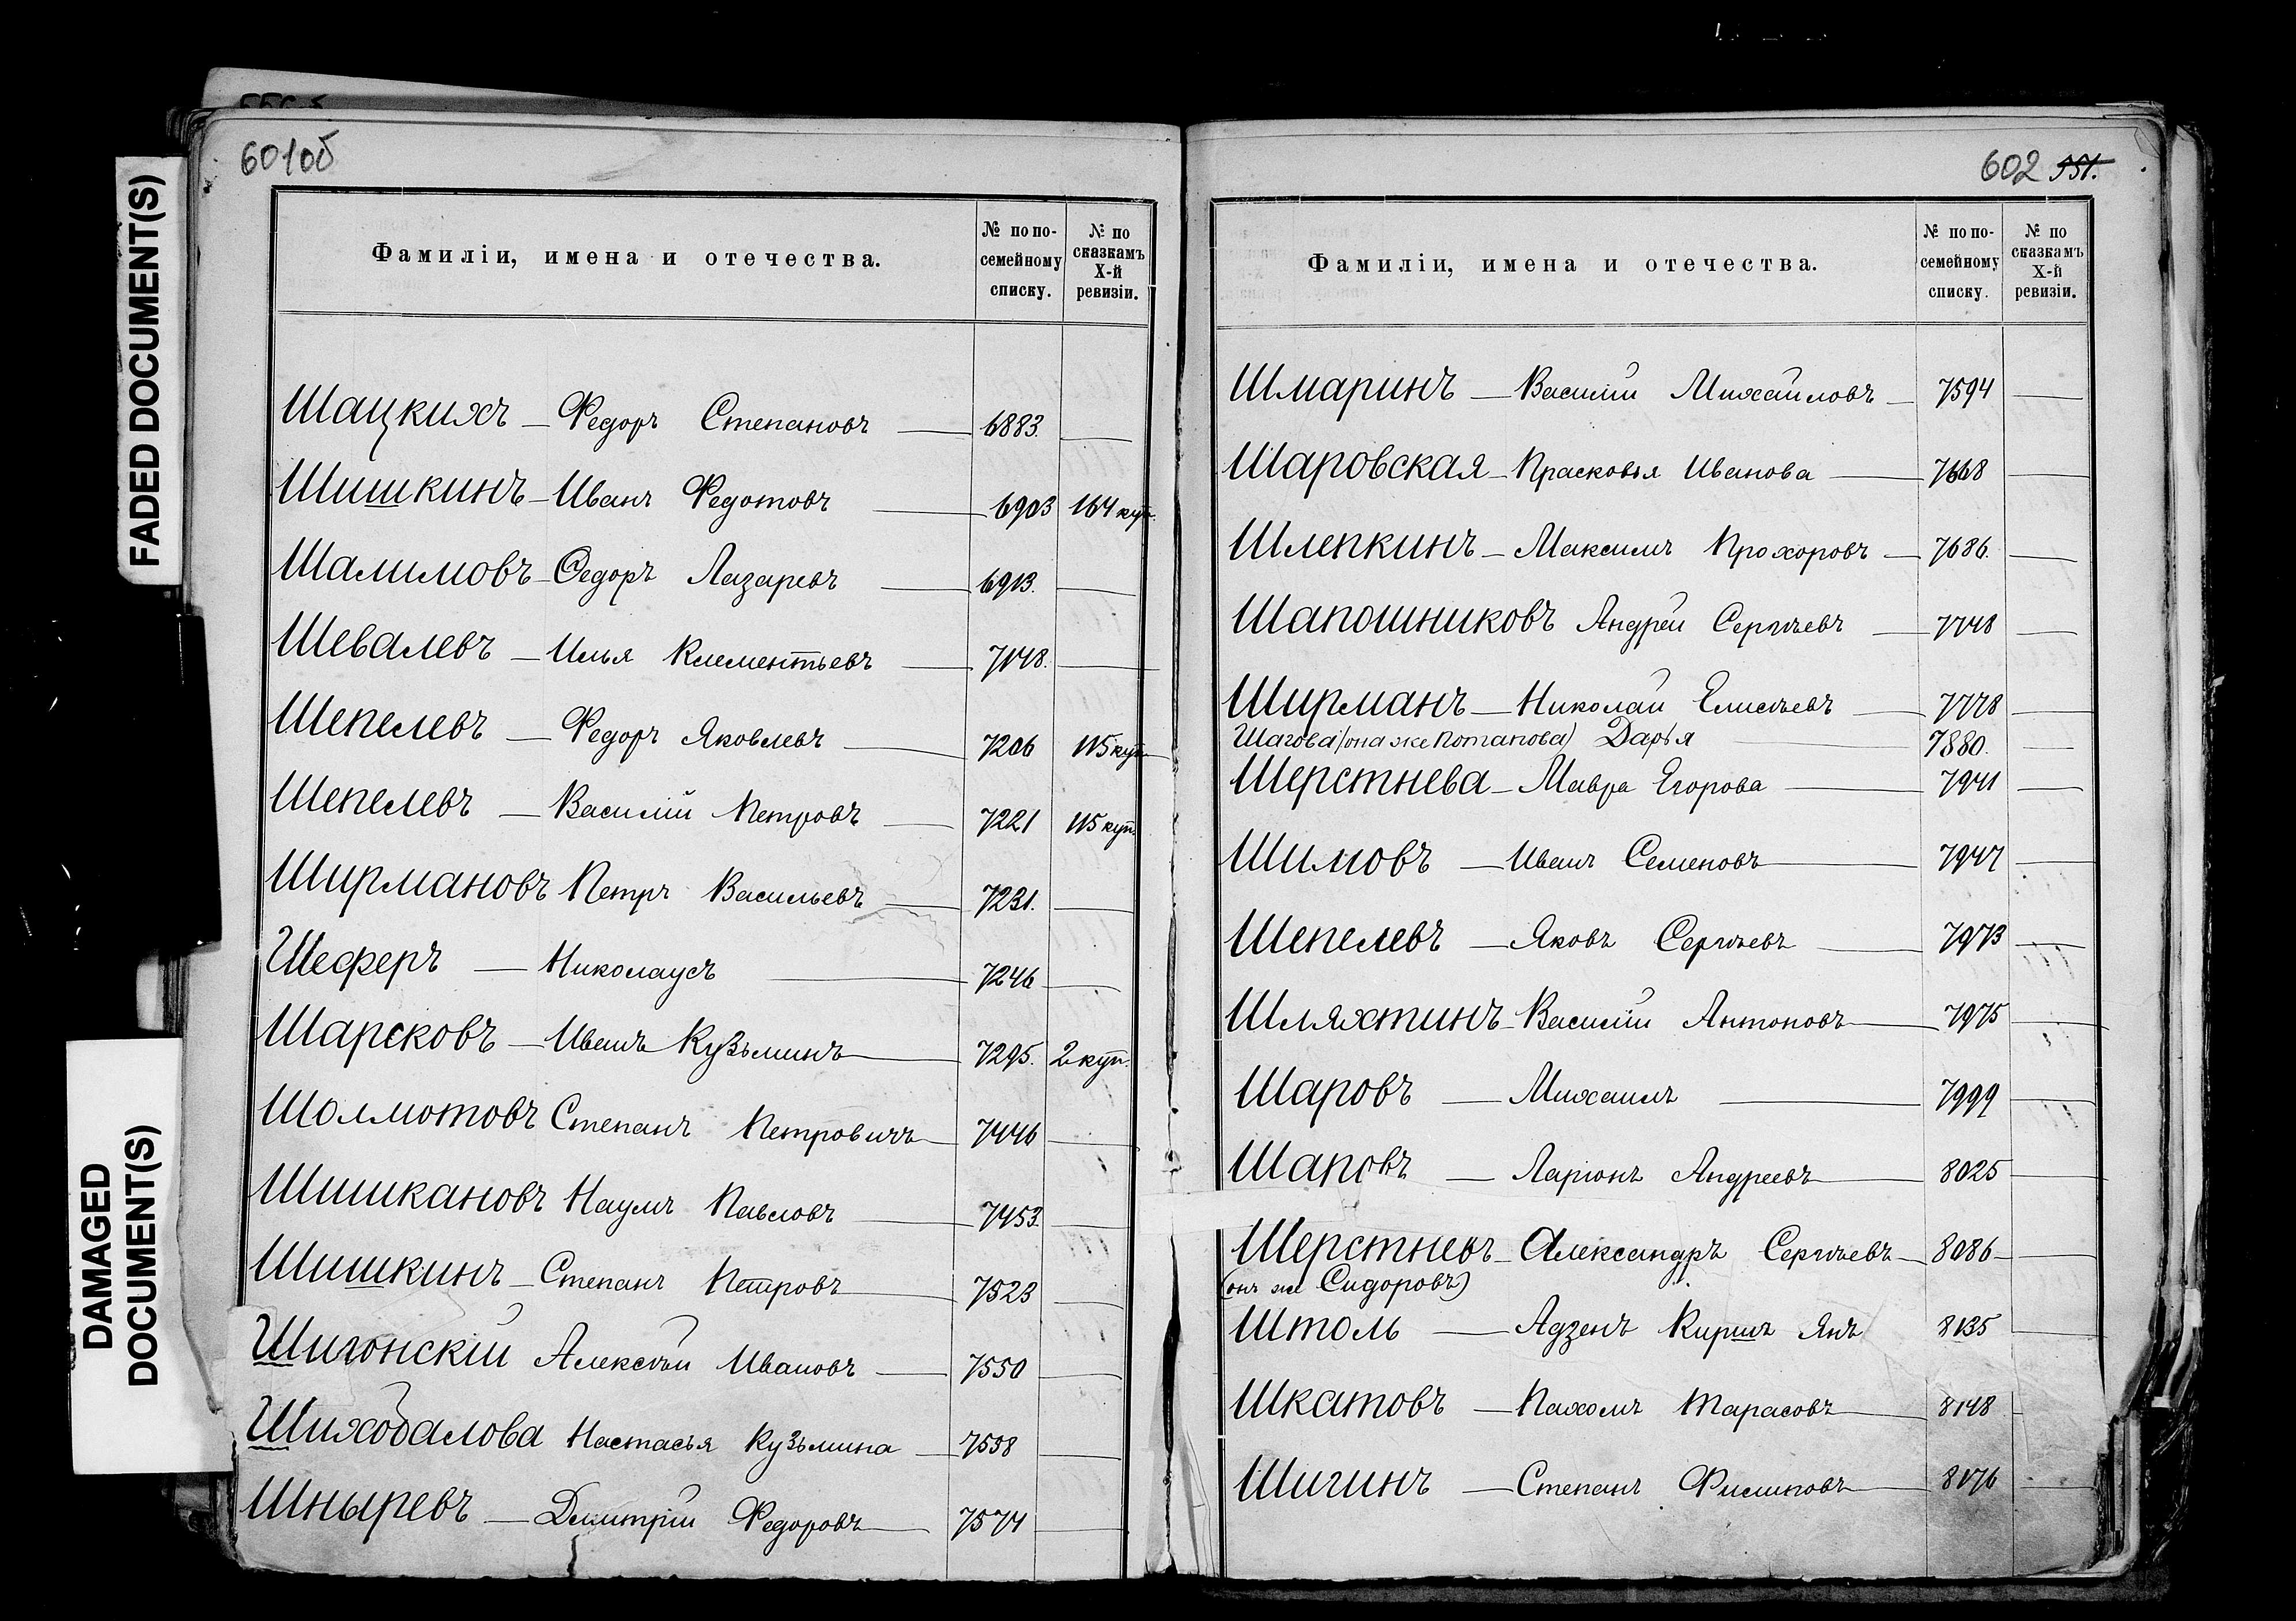 FADED DOCUMENT(S)
DAMAGED
DOCUMENT(S)
601об
Фамиліи, имена и отечества.
№ по по-
семейному
списку.
№ по
сказкамъ
X-й
ревизіи.
Шацкихъ — Федоръ Степановъ — 6883. —
Шишкинъ — Иванъ Федотовъ — 6903 164 куп.
Шалимовъ — Федоръ Лазаревъ — 6913. —
Шевалевъ — Илья Клементьевъ — 7148. —
Шепелевъ — Федоръ Яковлевъ — 7206 115 куп
Шепелевъ — Василій Петровъ — 7221 115 куп.
Ширмановъ Петръ Васильевъ — 7231. —
Шеферъ — Николаусъ — 7246 —
Шарсковъ — Иванъ Кузьминъ — 7295. 2 куп.
Шолмотовъ Степанъ Петровичъ — 7446 —
Шишкановъ Наумъ Павловъ — 7453. —
Шишкинъ — Степанъ Петровъ — 7523 —
Шигонскій Алексѣй Ивановъ — 7550 —
Шиходалова Настасья Кузьмина — 7558 —
Шныревъ — Дмитрій Федоровъ — 7574 —
602 551.
Фамиліи, имена и отечества.
№ по по-
семейному
списку.
№ по
сказкамъ
X-й
ревизіи.
Шмаринъ — Василій Михайловъ — 7594 —
Шаровская — Прасковья Иванова — 7668 —
Шлепкинъ — Максимъ Прохоровъ — 7686. —
Шапошниковъ Андрей Сергѣевъ — 7748 —
Ширманъ — Николай Елисѣевъ — 7778 —
Шагова (она же Потапова) Дарья 7880. —
Шерстнева — Мавра Егорова — 7941 —
Шимовъ — Иванъ Семеновъ — 7947 —
Шепелевъ — Яковъ Сергѣевъ — 7973 —
Шляхтинъ — Василій Антоновъ — 7975 —
Шаровъ — Михаилъ — 7999 —
Шаповъ — Ларіонъ Андреевъ — 8025 —
Шерстневъ — Александръ Сергѣевъ — 8086 —
(онъ же Сидоровъ)
Штоль — Адзенъ Киришъ Янъ 8135 —
Шкатовъ — Пахомъ Тарасовъ — 8148 —
Шигинъ — Степанъ Филиповъ — 8176 —